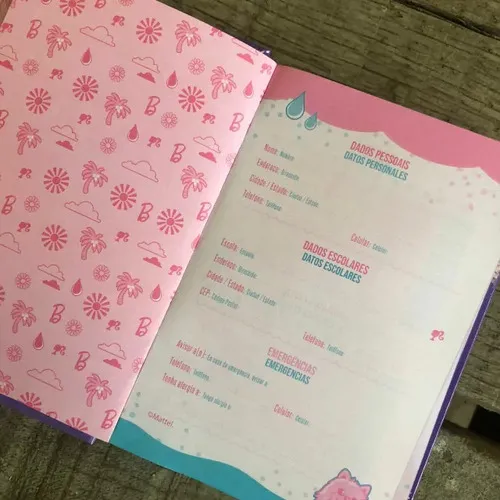 DADOS PESSOAIS
DATOS PERSONALES
Nome: Nombre
Endereço: Dirección
Cidade / Estado: Ciudad / Estado
Telefone: Teléfono
Celular: Celular
DADOS ESCOLARES
DATOS ESCOLARES
Escola: Escuela
Endereço: Dirección
Cidade / Estado: Ciudad / Estado
CEP: Código Postal
Telefone: Teléfono
EMERGÊNCIAS
EMERGENCIAS
Avisar a(o): En caso de emergencia, avisar a:
Telefone: Teléfono
Celular: Celular
Tenho alergia a: Tengo alergia a:
©Mattel